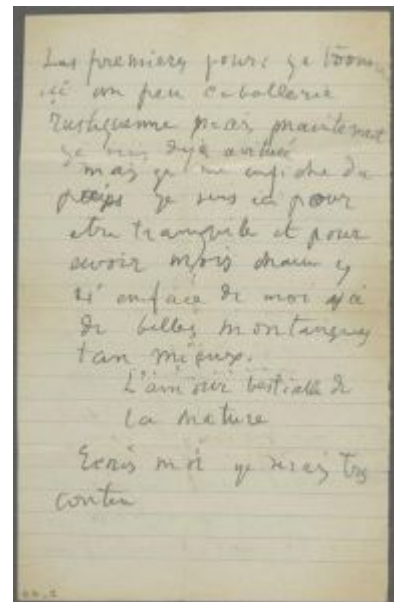 Les premiers jours ge trouve
ici un peu caballerie
Rustiquenne mais maintenant
ge suis deja
mais ge me enfiche du
ge suis ici pour
etre tranquile et pour
avoir mois
si enfasse de moi
de belles montangues
tan mieux.
L'amour bestialle de
La nature
Ecris moi ge serais tres
conten